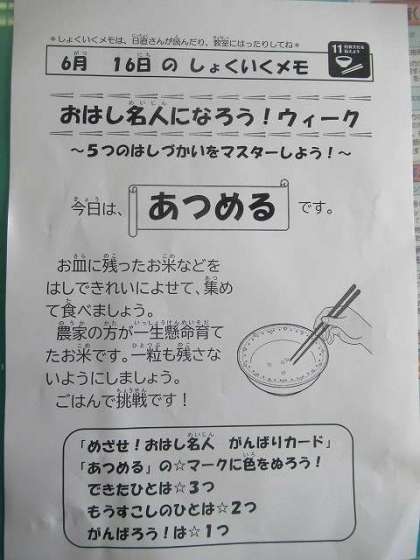 ＊しょくいくメモは、日直さんが読んだり、教室にはったりしてね＊
6月 16日 の しょくいくメモ
11
おはし名人になろう！ウィーク
～５つのはしづかいをマスターしよう！～
今日は、 あつめる です。
お皿に残ったお米などを
はしできれいによせて、集め
て食べましょう。
農家の方が一生懸命育て
たお米です。一粒も残さな
いようにしましょう。
ごはんで挑戦です！
「めざせ！おはし名人 がんばりカード」
「あつめる」の☆マークに色をぬろう！
できたひとは☆３つ
もうすこしのひとは☆２つ
がんばろう！は☆１つ